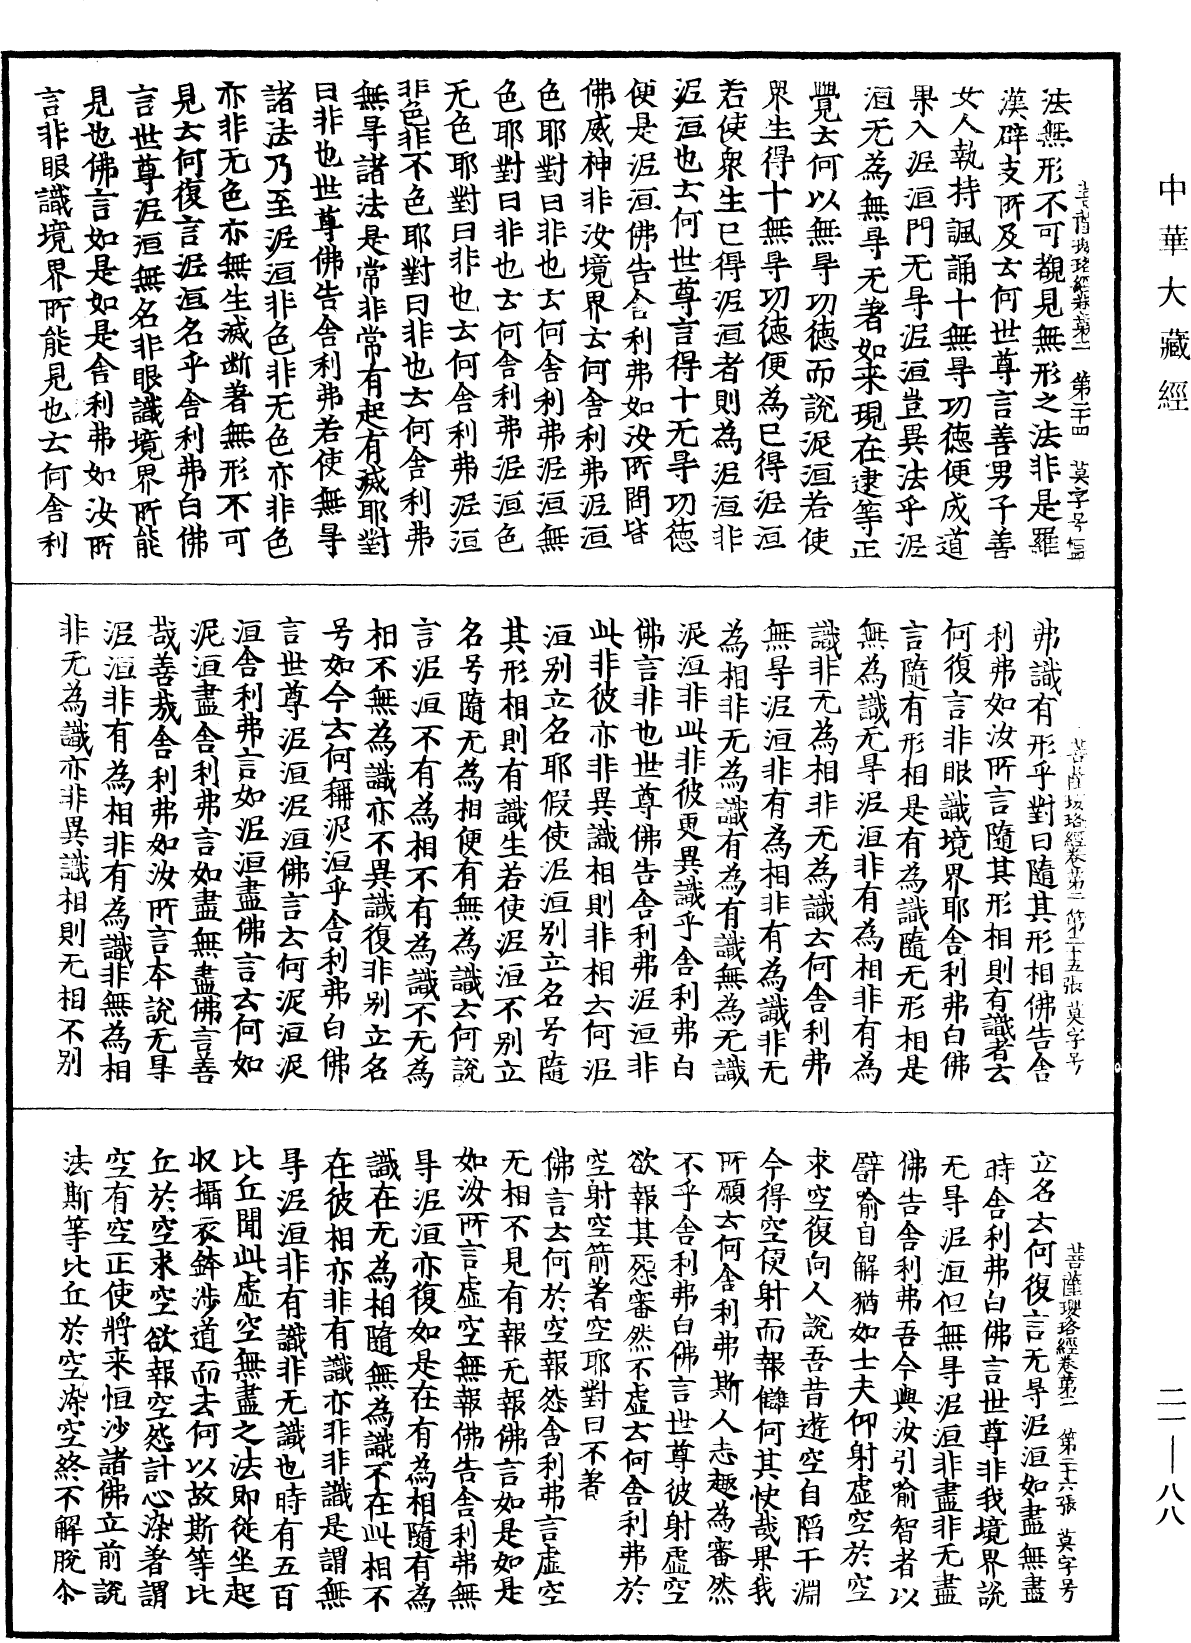 中華大藏經
二一—八八
法無形不可覩見無形之法非是羅
漢辟支所及去何世尊言善男子善
女人執持諷誦十無㝵功德便成道
果入泥洹門无㝵泥洹豈異法乎泥
洹无為無㝵无著如来現在逮等正
覺去何以無㝵功德而說泥洹若使
眾生得十無㝵功德便為已得泥洹
若使眾生已得泥洹者則為泥洹非
泥洹也去何世尊言得十无㝵功德
便是泥洹佛告舍利弗如汝所問皆
佛威神非汝境界去何舍利弗泥洹
色耶對曰非也去何舍利弗泥洹無
色耶對曰非也去何舍利弗泥洹色
无色耶對曰非也去何舍利弗泥洹
非色非不色耶對曰非也去何舍利弗
無㝵諸法是常非常有起有滅耶對
曰非也世尊佛告舍利弗若使無㝵
諸法乃至泥洹非色非无色亦非色
亦非无色亦無生滅断著無形不可
見去何復言泥洹名乎舍利弗白佛
言世尊泥洹無名非眼識境界所能
見也佛言如是如是舍利弗如汝所
言非眼識境界所能見也去何舍利
菩薩瓔珞經卷第二 第二十四 莫字号
弗識有形乎對曰隨其形相佛告舍
利弗如汝所言隨其形相則有識者去
何復言非眼識境界耶舍利弗白佛
言隨有形相是有為識隨无形相是
無為識无㝵泥洹非有為相非有為
識非无為相非无為識去何舍利弗
無㝵泥洹非有為相非有為識非无
為相非无為識有為有識無為无識
泥洹非此非彼更異識乎舍利弗白
佛言非也世尊佛告舍利弗泥洹非
此非彼亦非異識相則非相去何泥
洹別立名耶假使泥洹別立名号隨
其形相則有識生若使泥洹不別立
名号隨无為相便有無為識去何說
言泥洹不有為相不有為識不无為
相不無為識亦不異識復非別立名
号如今去何稱泥洹乎舍利弗白佛
言世尊泥洹泥洹佛言去何泥洹泥
洹舍利弗言如泥洹盡佛言去何如
泥洹盡舍利弗言如盡無盡佛言善
哉善哉舍利弗如汝所言本說无㝵
泥洹非有為相非有為識非無為相
非无為識亦非異識相則无相不別
菩薩瓔珞經卷第二 第二十五張 莫字号
立名去何復言无㝵泥洹如盡無盡
時舍利弗白佛言世尊非我境界說
无㝵泥洹但無㝵泥洹非盡非无盡
佛告舍利弗吾今與汝引喻智者以
譬喻自解猶如士夫仰射虛空於空
求空復向人說吾昔遊空自陷千淵
今得空便射而報讎何其快哉果我
所願去何舍利弗斯人志趣為審然
不乎舍利弗白佛言世尊彼射虛空
欲報其怨審然不虛去何舍利弗於
空射空箭著空耶對曰不著
佛言去何於空報怨舍利弗言虛空
无相不見有報无報佛言如是如是
如汝所言虛空無報佛告舍利弗無
㝵泥洹亦復如是在有為相隨有為
識在无為相隨無為識不在此相不
在彼相亦非有識亦非非識是謂無
㝵泥洹非有識非无識也時有五百
比丘聞此虛空無盡之法即從坐起
收攝衣鉢涉道而去何以故斯等比
丘於空求空欲報空怨計心染著謂
空有空正使將来恒沙諸佛立前說
法斯等比丘於空染空終不解脫尒
菩薩瓔珞經卷第二 第二十六張 莫字号